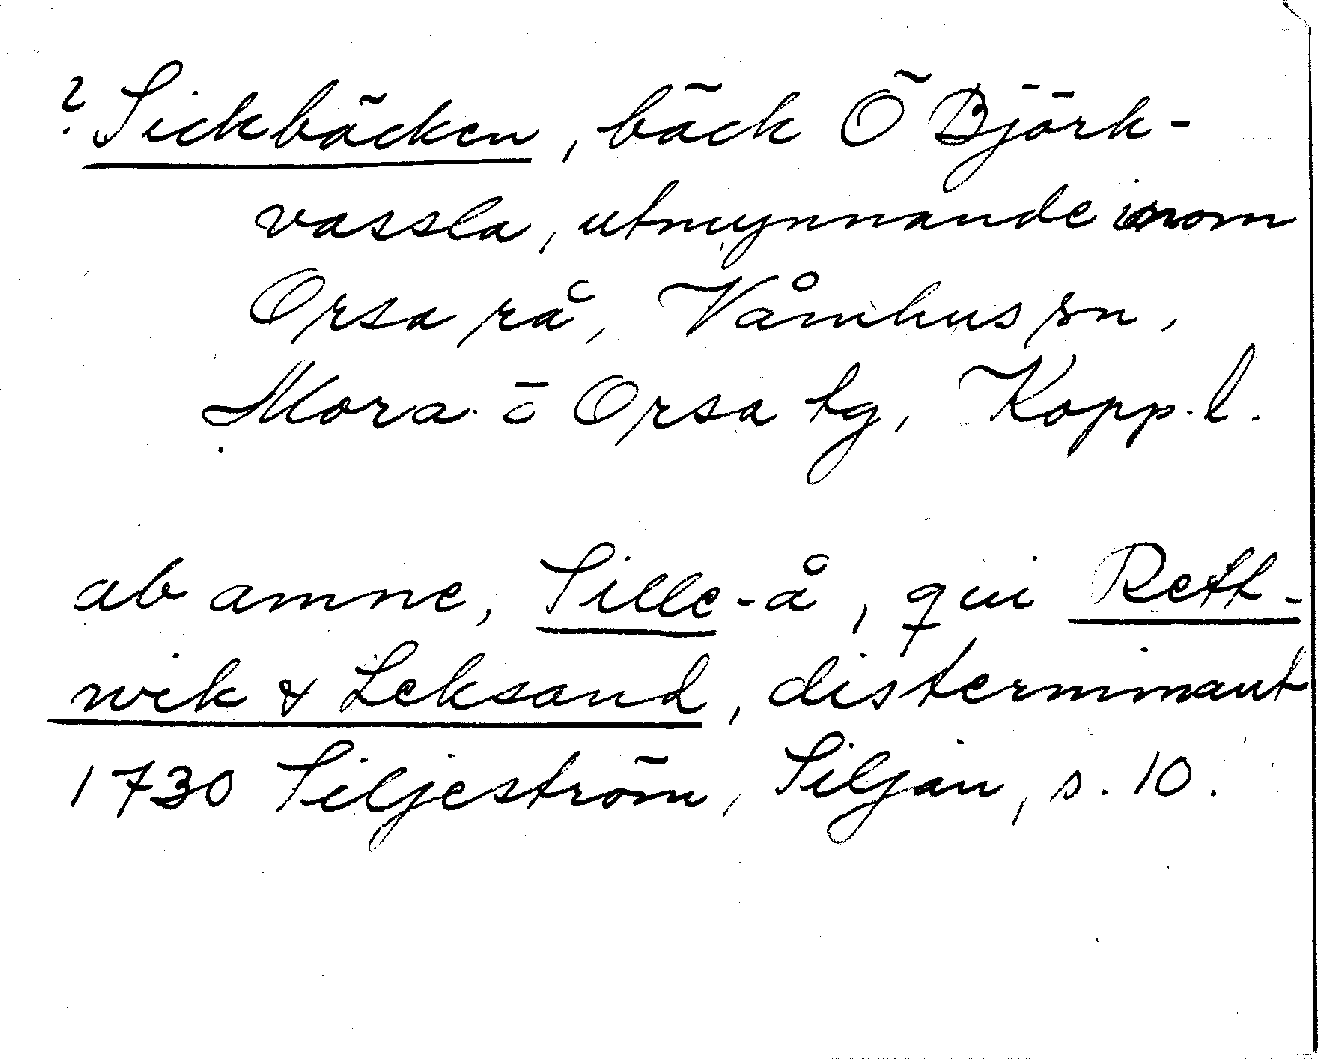 ? Sickbäcken, bäck Ö Björk-
vassla, utmynnande inom
Orsa rå, Våmhus sn,
Mora o Orsa tg, Kopp. l.
ab amne, Sille-å, qui Reth-
wik & Leksand, disterminant
1730 Siljeström, Siljan, s. 10.